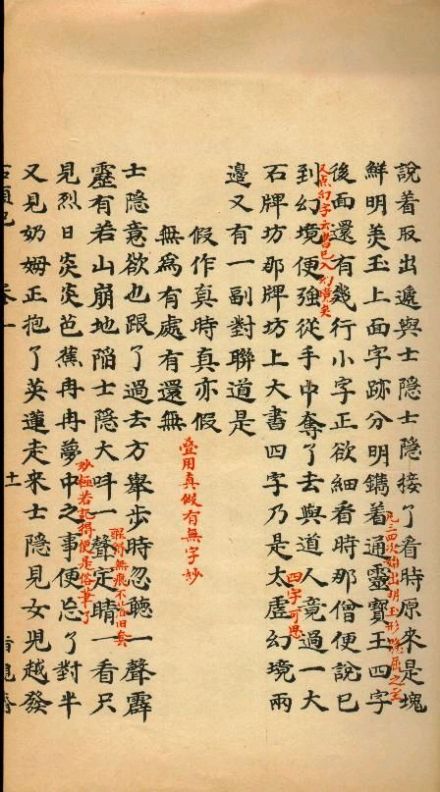 說着取出遞與士隱士隱接了看時原來是塊
鮮明美玉上面字跡分明鐫着通靈寶玉四字
凡三四次始出明玉形隱屈之至
後面還有幾行小字正欲細看時那僧便說已
又点幻字云書已入幻境矣
到幻境便強從手中奪了去與道人竟過一大
四字可思
石牌坊那牌坊上大書四字乃是太虛幻境兩
邊又有一副對聯道是
假作真時真亦假
叠用真假有無字妙
無為有處有還無
士隱意欲也跟了過去方舉步時忽聽一聲霹
醒得無痕不落旧套
靂有若山崩地陷士隱大呌一聲定睛一看只
妙極若記得便是俗筆了
見烈日炎炎芭蕉冉冉夢中之事便忘了對半
又見奶姆正抱了英蓮走來士隱見女兒越發